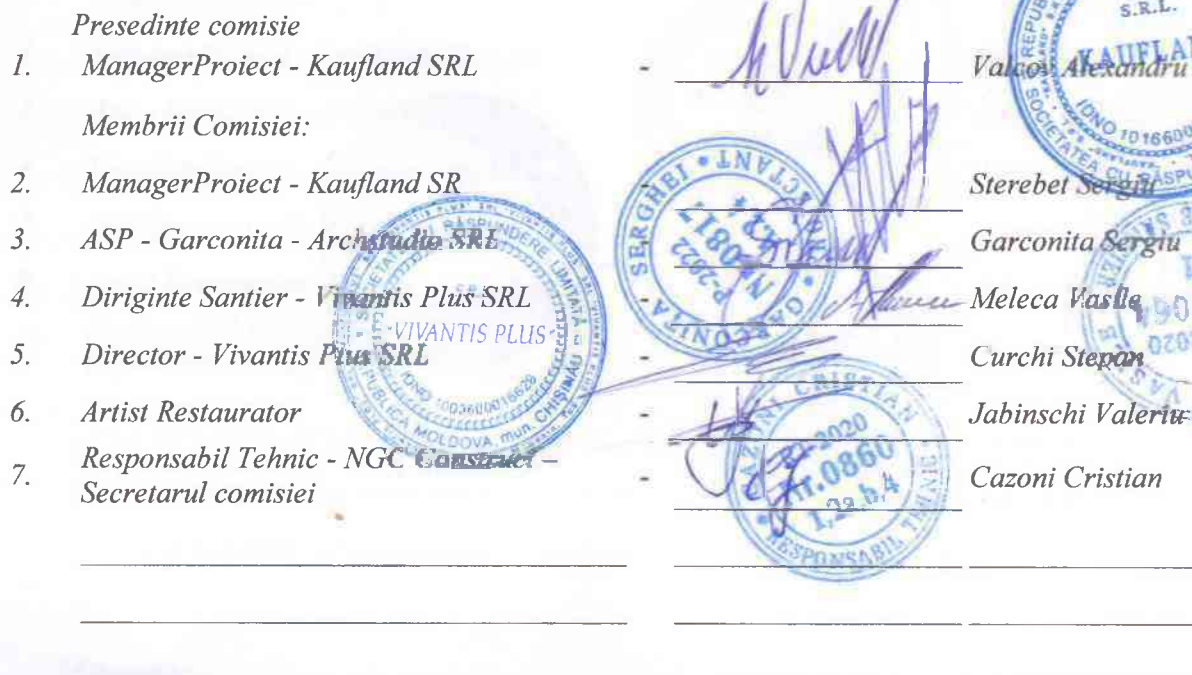 Presedinte comisie
1. ManagerProiect - Kaufland SRL - Valcov Alexandru
Membrii Comisiei:
2. ManagerProiect - Kaufland SR - Sterebet Sergiu
3. ASP - Garconita - Archstudio SRL - Garconita Sergiu
4. Diriginte Santier - Vivantis Plus SRL - Meleca Vasile
5. Director - Vivantis Plus SRL - Curchi Stepan
6. Artist Restaurator - Jabinschi Valeriu
7. Responsabil Tehnic - NGC Construct –
Secretarul comisiei - Cazoni Cristian
S.R.L.
KAUFLAN
IDNO 1016600
SERGHEI
GARCONITA
P-2022
Nr. 0817
VIVANTIS PLUS
IDNO 1003600016629
REPUBLICA MOLDOVA mun. CHIŞINĂU
CAZONI CRISTIAN
2020
nr.0860
RESPONSABIL TEHNIC